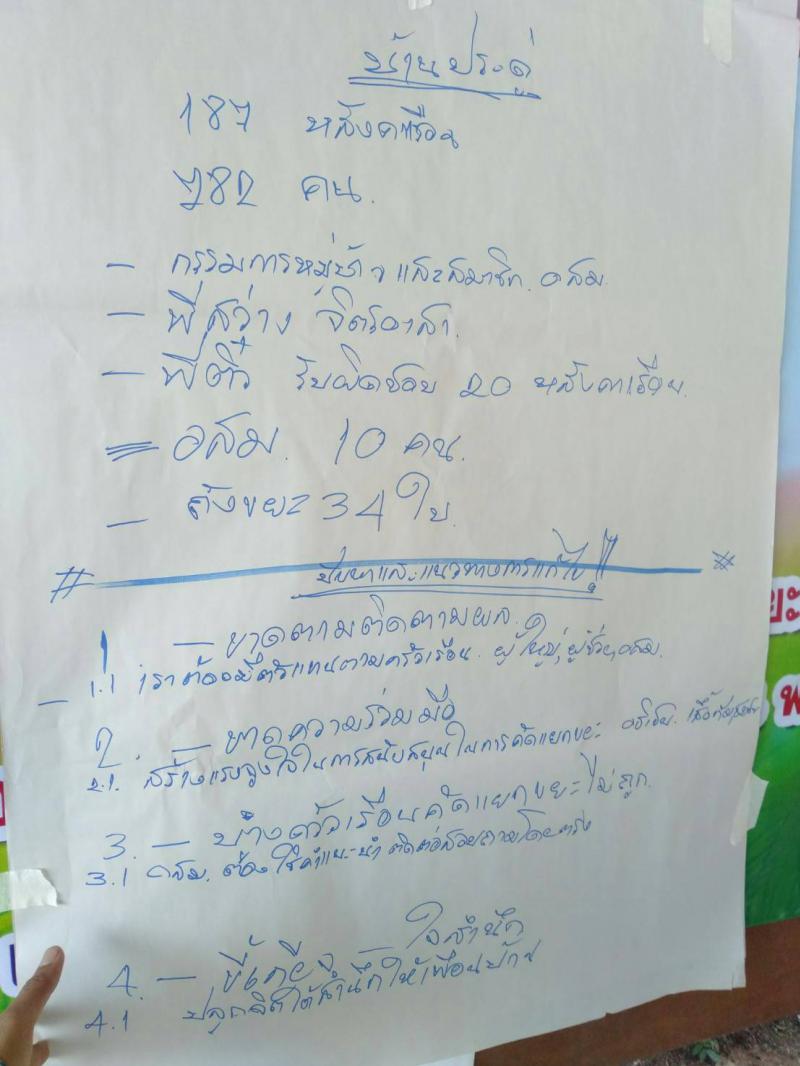 บ้านประดู่
187 หลังคาเรือน
782 คน.
- กรรมการหมู่บ้าน และสมาชิก อสม.
- พี่สว่าง จิตอาสา.
- พี่ติ๋ว รับผิดชอบ 20 หลังคาเรือน.
= อสม. 10 คน.
- ถังขยะ 34 ใบ.
# ปัญหาและแนวทางการแก้ไข #
1 - ขาดตามติดตามผล.
- 1.1 เราต้องมีตัวแทนตามครัวเรือน. ผู้ใหญ่, ผู้ช่วย, อสม.
2. - ขาดความร่วมมือ
2.1. สร้างแรงจูงใจในการสนับสนุนในการคัดแยกขยะ
3. - บางครัวเรือนคัดแยกขยะไม่ถูก.
3.1 อสม. ต้องให้คำแนะนำ ติดต่อสอบถามโดยตรง
4. - ขี้เกียจ ใจสำนึก
4.1 ปลูกจิตใต้สำนึกให้เพื่อนบ้าน
ยะ
พ